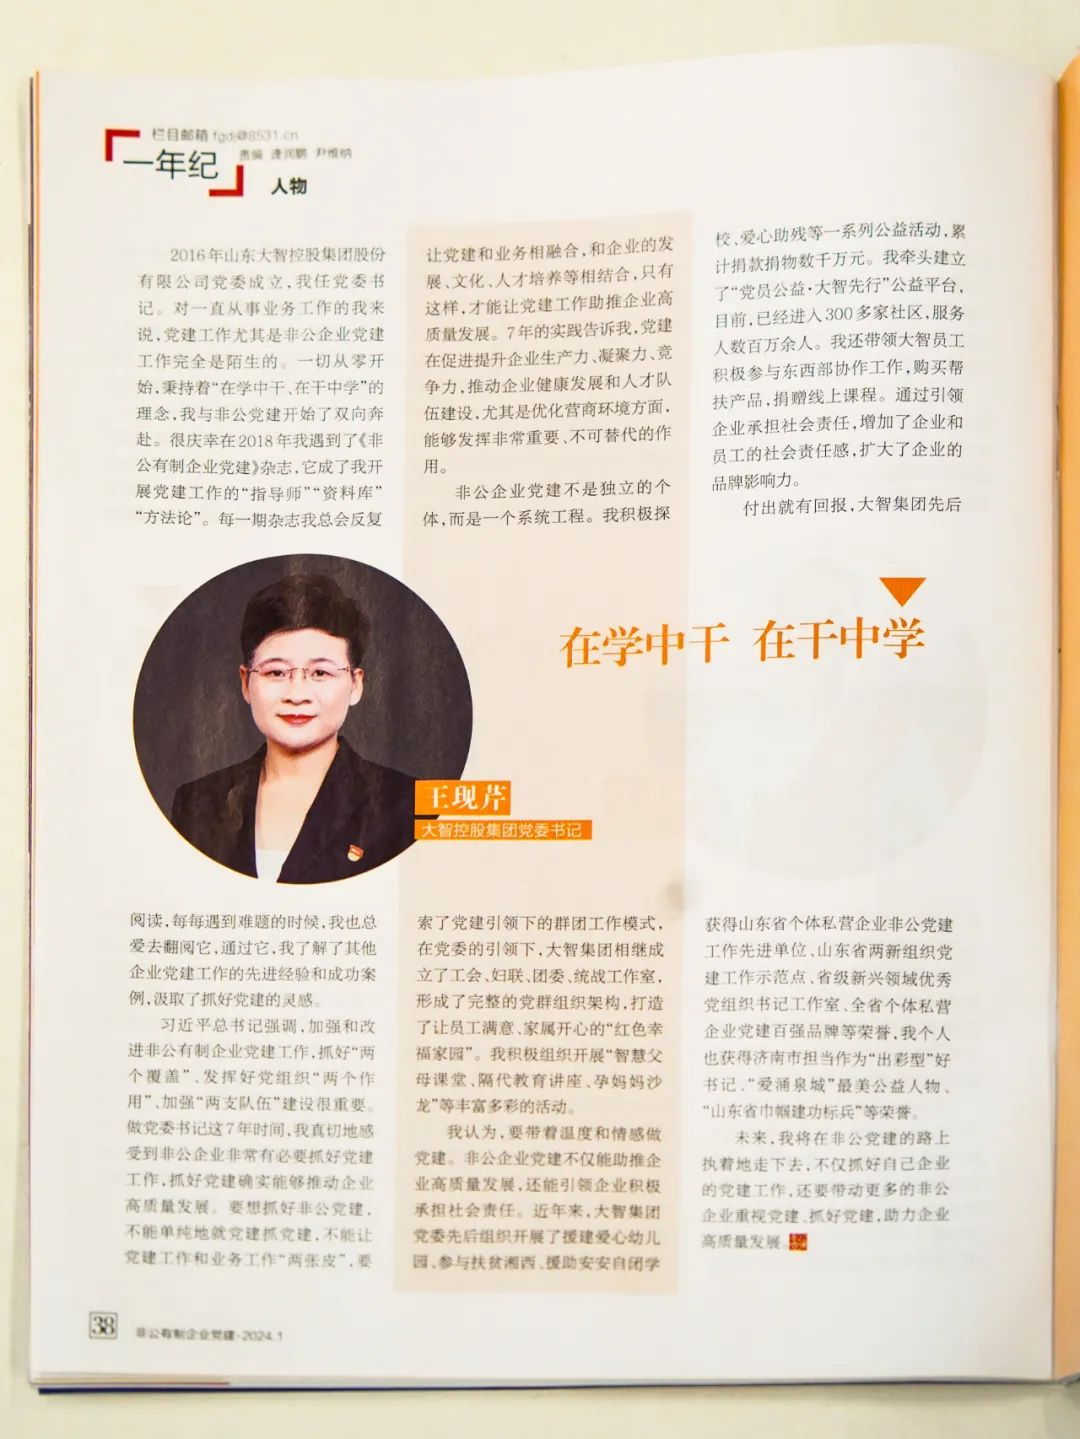 栏目邮箱 fgdj@8531.cn
责编 逄润鹏 尹维纳
一年纪
人物
2016年山东大智控股集团股份
有限公司党委成立，我任党委书
记。对一直从事业务工作的我来
说，党建工作尤其是非公企业党建
工作完全是陌生的。一切从零开
始，秉持着“在学中干、在干中学”的
理念，我与非公党建开始了双向奔
赴。很庆幸在2018年我遇到了《非
公有制企业党建》杂志，它成了我开
展党建工作的“指导师”“资料库”
“方法论”。每一期杂志我总会反复
阅读，每每遇到难题的时候，我也总
爱去翻阅它，通过它，我了解了其他
企业党建工作的先进经验和成功案
例，汲取了抓好党建的灵感。
习近平总书记强调，加强和改
进非公有制企业党建工作，抓好“两
个覆盖”、发挥好党组织“两个作
用”、加强“两支队伍”建设很重要。
做党委书记这7年时间，我真切地感
受到非公企业非常有必要抓好党建
工作，抓好党建确实能够推动企业
高质量发展。要想抓好非公党建，
不能单纯地就党建抓党建，不能让
党建工作和业务工作“两张皮”，要
让党建和业务相融合，和企业的发
展、文化、人才培养等相结合，只有
这样，才能让党建工作助推企业高
质量发展。7年的实践告诉我，党建
在促进提升企业生产力、凝聚力、竞
争力，推动企业健康发展和人才队
伍建设，尤其是优化营商环境方面，
能够发挥非常重要、不可替代的作
用。
非公企业党建不是独立的个
体，而是一个系统工程。我积极探
索了党建引领下的群团工作模式，
在党委的引领下，大智集团相继成
立了工会、妇联、团委、统战工作室，
形成了完整的党群组织架构，打造
了让员工满意、家属开心的“红色幸
福家园”。我积极组织开展“智慧父
母课堂、隔代教育讲座、孕妈妈沙
龙”等丰富多彩的活动。
我认为，要带着温度和情感做
党建。非公企业党建不仅能助推企
业高质量发展，还能引领企业积极
承担社会责任。近年来，大智集团
党委先后组织开展了援建爱心幼儿
园、参与扶贫湘西、援助安安自闭学
校、爱心助残等一系列公益活动，累
计捐款捐物数千万元。我牵头建立
了“党员公益·大智先行”公益平台，
目前，已经进入300多家社区，服务
人数百万余人。我还带领大智员工
积极参与东西部协作工作，购买帮
扶产品，捐赠线上课程。通过引领
企业承担社会责任，增加了企业和
员工的社会责任感，扩大了企业的
品牌影响力。
付出就有回报，大智集团先后
获得山东省个体私营企业非公党建
工作先进单位、山东省两新组织党
建工作示范点、省级新兴领域优秀
党组织书记工作室、全省个体私营
企业党建百强品牌等荣誉，我个人
也获得济南市担当作为“出彩型”好
书记、“爱涌泉城”最美公益人物、
“山东省巾帼建功标兵”等荣誉。
未来，我将在非公党建的路上
执着地走下去，不仅抓好自己企业
的党建工作，还要带动更多的非公
企业重视党建、抓好党建，助力企业
高质量发展。
在学中干 在干中学
王现芹
大智控股集团党委书记
38
非公有制企业党建·2024.1